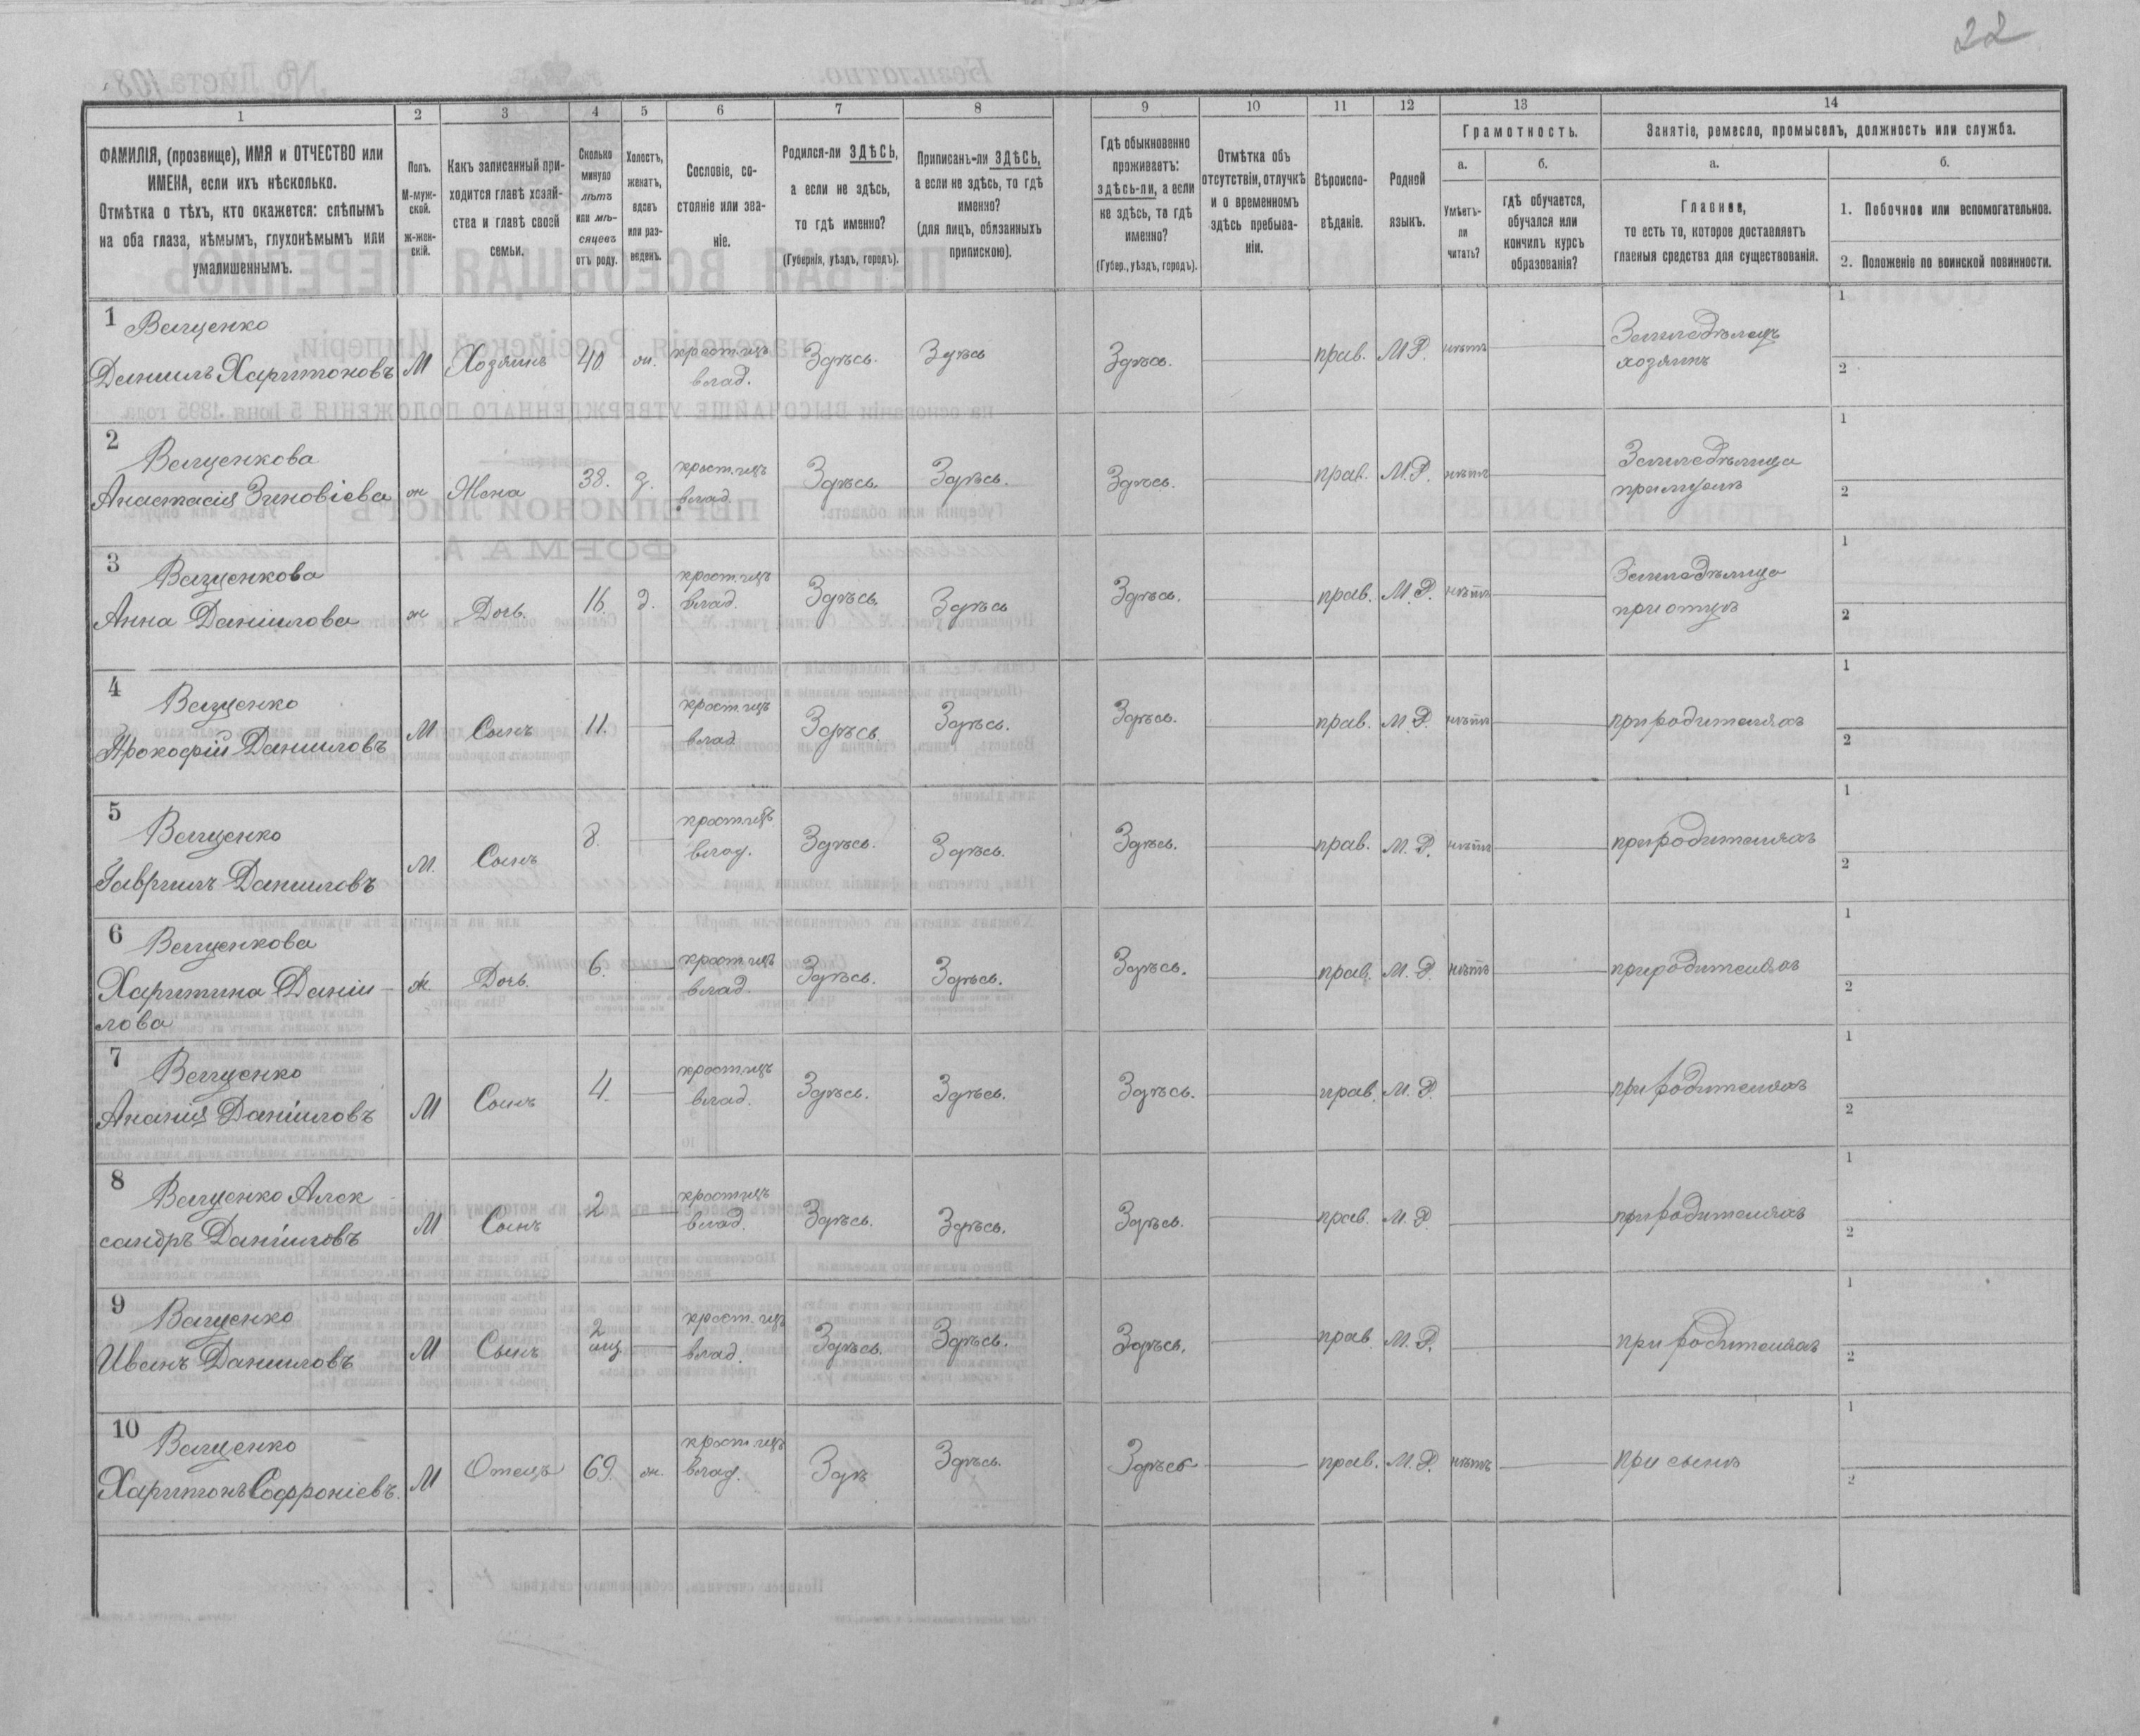 22
1 2 3 4 5 6 7 8 9 10 11 12 13 14
ФАМИЛІЯ, (прозвище), ИМЯ и ОТЧЕСТВО или
ИМЕНА, если ихъ нѣсколько.
Отмѣтка о тѣхъ, кто окажется: слѣпымъ
на оба глаза, нѣмымъ, глухонѣмымъ или
умалишеннымъ.
Полъ.
М-муж-
ской.
ж-жен-
скій.
Какъ записанный при-
ходится главѣ хозяй-
ства и главѣ своей
семьи.
Сколько
минуло
лѣтъ
или мѣ-
сяцевъ
отъ роду.
Холостъ,
женатъ,
вдовъ
или раз-
веденъ.
Сословіе, со-
стояніе или зва-
ніе.
Родился-ли ЗДѢСЬ,
а если не здѣсь,
то гдѣ именно?
(Губернія, уѣздъ, городъ).
Приписанъ-ли ЗДѢСЬ,
а если не здѣсь, то гдѣ
именно?
(для лицъ, обязанныхъ
припискою).
Гдѣ обыкновенно
проживаетъ:
здѣсь-ли, а если
не здѣсь, то гдѣ
именно?
(Губер., уѣздъ, городъ).
Отмѣтка объ
отсутствіи, отлучкѣ
и о временномъ
здѣсь пребыва-
ніи.
Вѣроиспо-
вѣданіе.
Родной
языкъ.
Грамотность.
а.
Умѣетъ-
ли
читать?
б.
гдѣ обучается,
обучался или
кончилъ курсъ
образованія?
Занятіе, ремесло, промыселъ, должность или служба.
а.
Главное,
то есть то, которое доставляетъ
главныя средства для существованія.
б.
1. Побочное или вспомогательное.
2. Положеніе по воинской повинности.
1 Ващенко
Даніилъ Харитоновъ М Хозяинъ 40 ж. крест. изъ влад. Здѣсь. Здѣсь Здѣсь. прав. М.Р. нѣтъ Земледѣлецъ хозяинъ 1 2
2 Ващенкова
Анастасія Зиновіева ж Жена 38. крест. изъ влад. Здѣсь. Здѣсь. Здѣсь. прав. М.Р. нѣтъ Земледѣлица при мужѣ 1 2
3 Ващенкова
Анна Даніилова ж Дочь. 16. д. крест. изъ влад. Здѣсь. Здѣсь Здѣсь. прав. М.Р. нѣтъ Земледѣлица при отцѣ 1 2
4 Ващенко
Прокофій Даниловъ М Сынъ 11. крест. изъ влад. Здѣсь Здѣсь. Здѣсь. прав. М.Р. нѣтъ при родителяхъ 1 2
5 Ващенко
Гавріилъ Даниловъ М. Сынъ 8. крест. изъ влад. Здѣсь. Здѣсь. Здѣсь. прав. М.Р. нѣтъ при родителяхъ 1 2
6 Ващенкова
Харитина Даніи-
лова ж. Дочь. 6. крест. изъ влад. Здѣсь. Здѣсь. Здѣсь. прав. М.Р. нѣтъ при родителяхъ 1 2
7 Ващенко
Ананія Даніиловъ М Сынъ 4. крест. изъ влад. Здѣсь. Здѣсь. Здѣсь. прав. М.Р. при родителяхъ 1 2
8 Ващенко Алек
сандръ Даніиловъ М Сынъ 2 крест. изъ влад. Здѣсь. Здѣсь. Здѣсь. прав. М.Р. при родителяхъ 1 2
9 Ващенко
Иванъ Даниловъ М Сынъ 2 мц крест. изъ влад. Здѣсь. Здѣсь. Здѣсь. прав М.Р. при родителяхъ 1 2
10 Ващенко
Харитонъ Софроніевъ. М Отецъ 69. ж. крест. изъ влад. Здѣ Здѣсь. Здѣсь прав. М.Р. нѣтъ при сынѣ 1 2